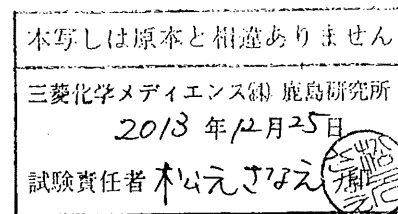 本写しは原本と相違ありません
三菱化学メディエンス㈱ 鹿島研究所
2013 年 12月 25日
試験責任者 松元さなえ